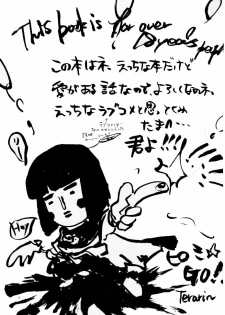 This book is for over
18 years old people
この本はネ、えっちな本だけど
愛がある話なので、よろしくなのネ
えっちなラブコメと思ってくれ
たまへ
君よ!!
Hey
GO!!
Terarin